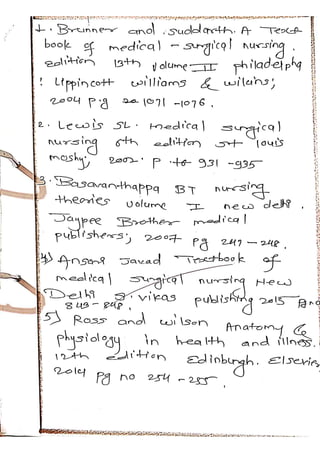 1. Brunner and suddarth. A Text
book of medical - surgical nursing.
edition 13th volume - II philadelpha
: Lippincott williams & wilkins;
2004 pg no 1071 - 1076.
2. Lewis SL. medical surgical
nursing 6th edition st louis
mosby; 2002. P. to 931 - 935
3. Basavanthappa BT nursing
theories volume I new delhi.
Jaypee Brother medical
publishers; 2007 pg 247 - 248.
4) Ansari Javad Textbook of
medical surgical nursing New
Delhi S. vikas publishing 2015 pg no
843 - 848.
5) Ross and wilson Anatomy &
physiology in health and illness.
12th edition Edinburgh. Elsevier
2014 pg no 254 - 255.